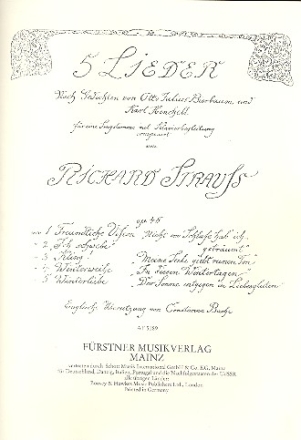 5 LIEDER
Nach Gedichten von Otto Julius Bierbaum und
Karl Henckell
für eine Singstimme mit Klavierbegleitung
von
RICHARD STRAUSS
op. 48
No 1 Freundliche Vision "Nicht im Schlafe hab' ich
geträumt"
- 2 "Ich schwebe"
- 3 "Kling!" "Meine Seele gibt reinen Ton"
- 4 Winterweihe "In diesen Wintertagen"
- 5 Winterliebe "Der Sonne entgegen in Liebesgluten"
Englische Übersetzung von Constance Bache
FÜRSTNER MUSIKVERLAG
MAINZ
Printed in Germany